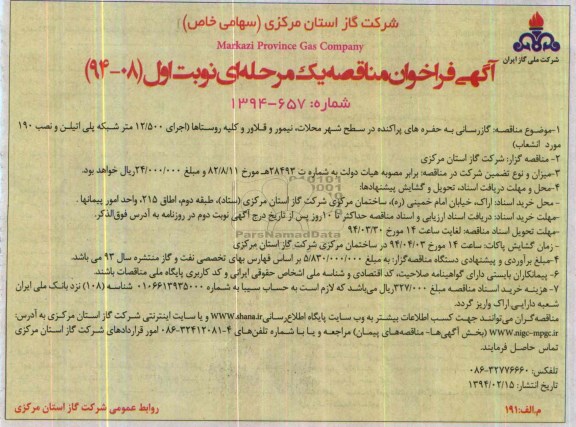 شرکت گاز استان مرکزی (سهامی خاص)
Markazi Province Gas Company
شرکت ملی گاز ایران
آگهی فراخوان مناقصه یک مرحله‌ای نوبت اول (۰۸-۹۴)
شماره: ۶۵۷-۱۳۹۴
۱-موضوع مناقصه: گازرسانی به حفره های پراکنده در سطح شهر محلات، نیمور و قلاور و کلیه روستاها (اجرای ۱۲/۵۰۰ متر شبکه پلی اتیلن و نصب ۱۹۰
مورد انشعاب)
۲- مناقصه گزار: شرکت گاز استان مرکزی
۳-میزان و نوع تضمین شرکت در مناقصه: برابر مصوبه هیات دولت به شماره ت ۲۸۴۹۳هـ مورخ ۸۲/۸/۱۱ و مبلغ ۲۴/۰۰۰/۰۰۰ریال خواهد بود.
۴-محل و مهلت دریافت اسناد، تحویل و گشایش پیشنهادها:
- محل خرید اسناد: اراک، خیابان امام خمینی (ره)، ساختمان مرکزی شرکت گاز استان مرکزی (ستاد)، طبقه دوم، اطاق ۲۱۵، واحد امور پیمانها .
-مهلت خرید اسناد: دریافت اسناد ارزیابی و اسناد مناقصه حداکثر تا ۱۰روز پس از تاریخ درج آگهی نوبت دوم در روزنامه به آدرس فوق‌الذکر.
-مهلت تحویل اسناد مناقصه: لغایت ساعت ۱۴ مورخ ۹۴/۰۳/۳۰
- زمان گشایش پاکات: ساعت ۱۴ مورخ ۹۴/۰۴/۰۳ در ساختمان مرکزی شرکت گاز استان مرکزی
ParsNamadData
۴-مبلغ برآوردی و پیشنهادی دستگاه مناقصه‌گزار: به مبلغ ۵/۸۳۰/۰۰۰/۰۰۰ بر اساس فهارس بهای تخصصی نفت و گاز منتشره سال ۹۳ می باشد.
۶- پیمانکاران بایستی دارای گواهینامه صلاحیت، کد اقتصادی و شناسه ملی اشخاص حقوقی ایرانی و کد کاربری پایگاه ملی مناقصات باشند.
۷- هزینه خرید اسناد مناقصه مبلغ ۳۲۷/۰۰۰ریال می‌باشد که لازم است به حساب سیبا به شماره ۰۱۰۶۶۱۳۹۳۵۰۰۰ شناسه (۱۰۸) نزد بانک ملی ایران
شعبه دارایی اراک واریز گردد.
مناقصه‌گران می‌توانند جهت کسب اطلاعات بیشتر به وب سایت پایگاه اطلاع‌رسانی www.shana.ir و یا سایت اینترنتی شرکت گاز استان مرکزی به آدرس:
www.nigc-mpgc.ir (بخش آگهی‌ها- مناقصه‌های پیمان) مراجعه و یا با شماره تلفن‌های ۴-۳۲۴۱۲۰۸۱-۰۸۶ امور قراردادهای شرکت گاز استان مرکزی
تماس حاصل فرمایند.
تلفکس: ۳۲۷۷۶۶۶۰-۰۸۶
تاریخ انتشار: ۱۳۹۴/۰۲/۱۵
م.الف:۱۹۱
روابط عمومی شرکت گاز استان مرکزی